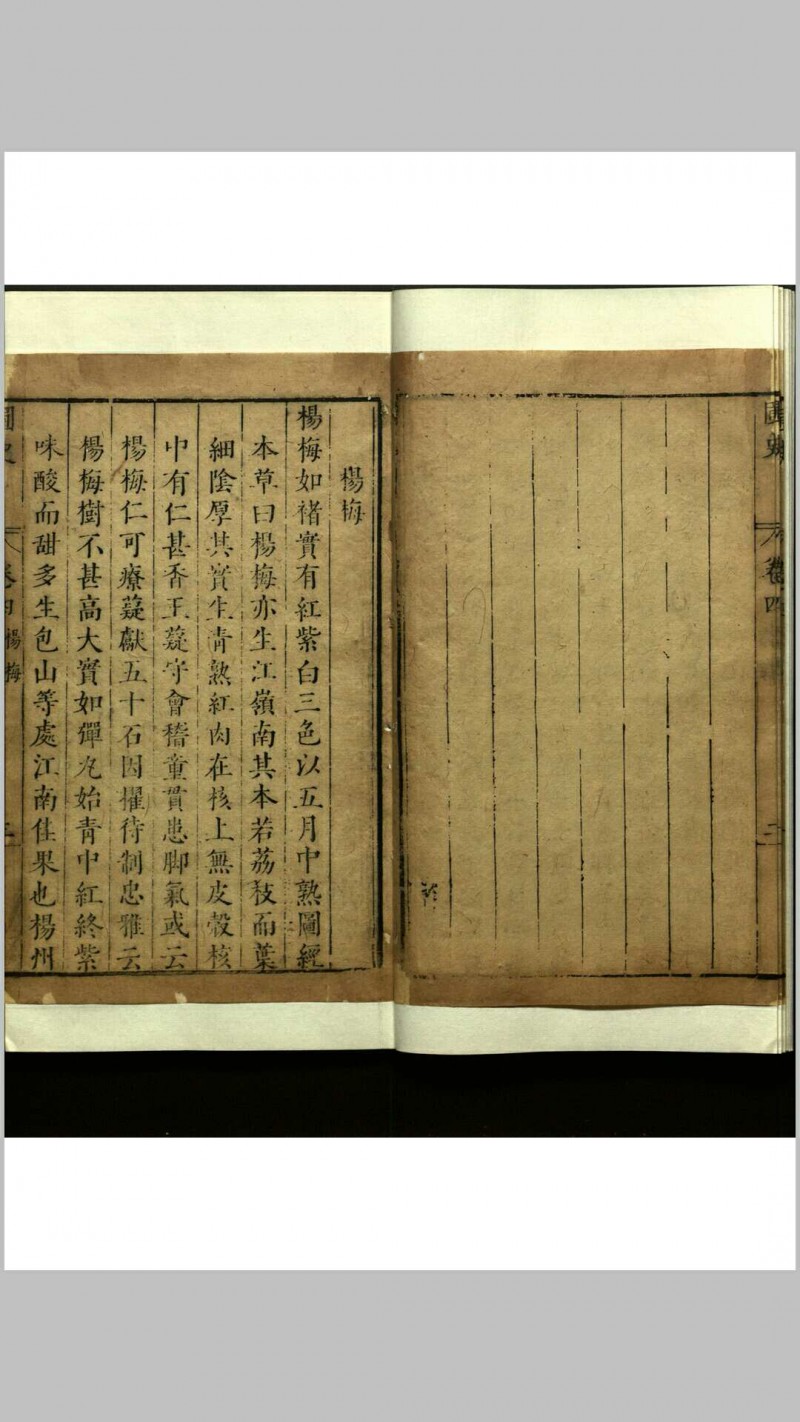 卷四
楊梅
楊梅如褚實有紅紫白三色以五月中熟圖經
本草曰楊梅亦生江嶺南其木若荔枝而葉
細陰厚其實生青熟紅肉在核上無皮殼核
中有仁甚香王嶷守會稽童貫患脚氣或云
楊梅仁可療嶷獻五十石因擢待制忠雅云
楊梅樹不甚高大實如彈丸始青中紅終紫
味酸而甜多生包山等處江南佳果也楊州
卷四 楊梅